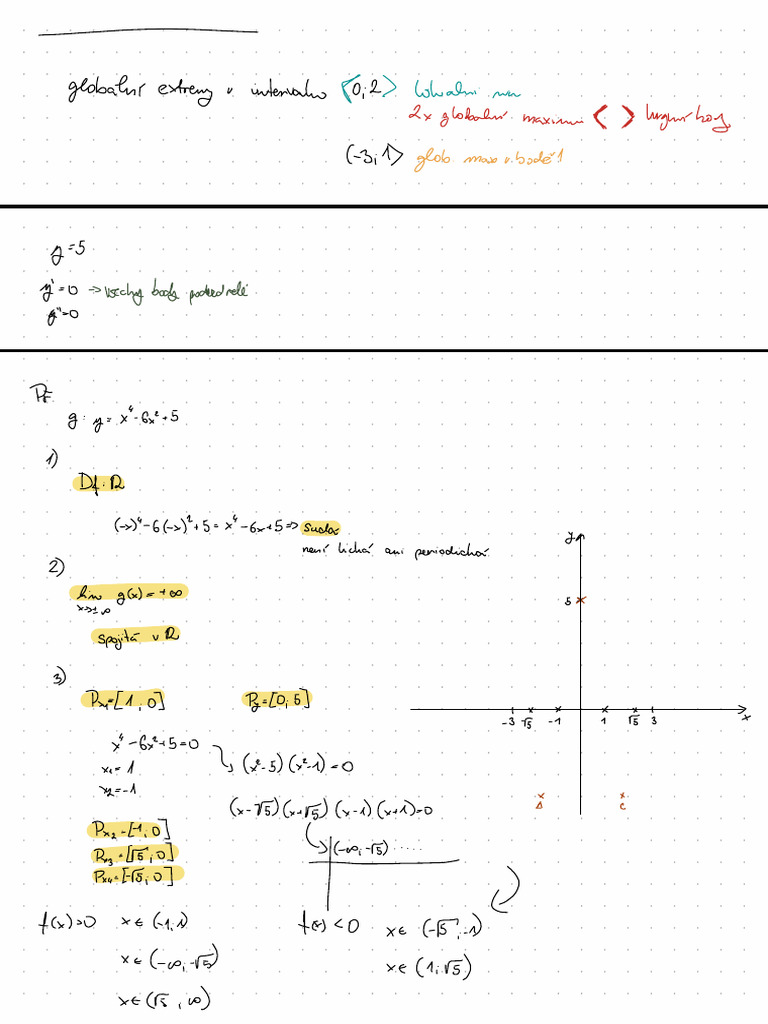 globální extrémy v intervalu <0;2> lokální min
2x globální maximum < > krajní body
(-3;1> glob max v bodě 1
y=5
y'=0 -> všechny body podezřelé
y''=0
Př.
g: y = x⁴-6x²+5
1)
Df: R
(-x)⁴-6(-x)²+5 = x⁴-6x+5 => sudá
není lichá ani periodická
2)
lim g(x) = +∞
x→±∞
spojitá v R
3)
Px₁=[1,0] Py=[0;5]
x⁴-6x²+5=0
x₁= 1
x₂=-1
(x²-5)(x²-1)=0
(x-√5)(x+√5)(x-1)(x+1)=0
Px₂=[-1,0]
Px₃=[√5,0]
Px₄=[-√5,0]
(-∞,-√5) .....
f(x)>0 x∈(-1,1)
x∈(-∞,-√5)
x∈(√5,∞)
f(x)<0 x∈(-√5,-1)
x∈(1;√5)
y
5
-3 √5 -1 1 √5 3
x
D C